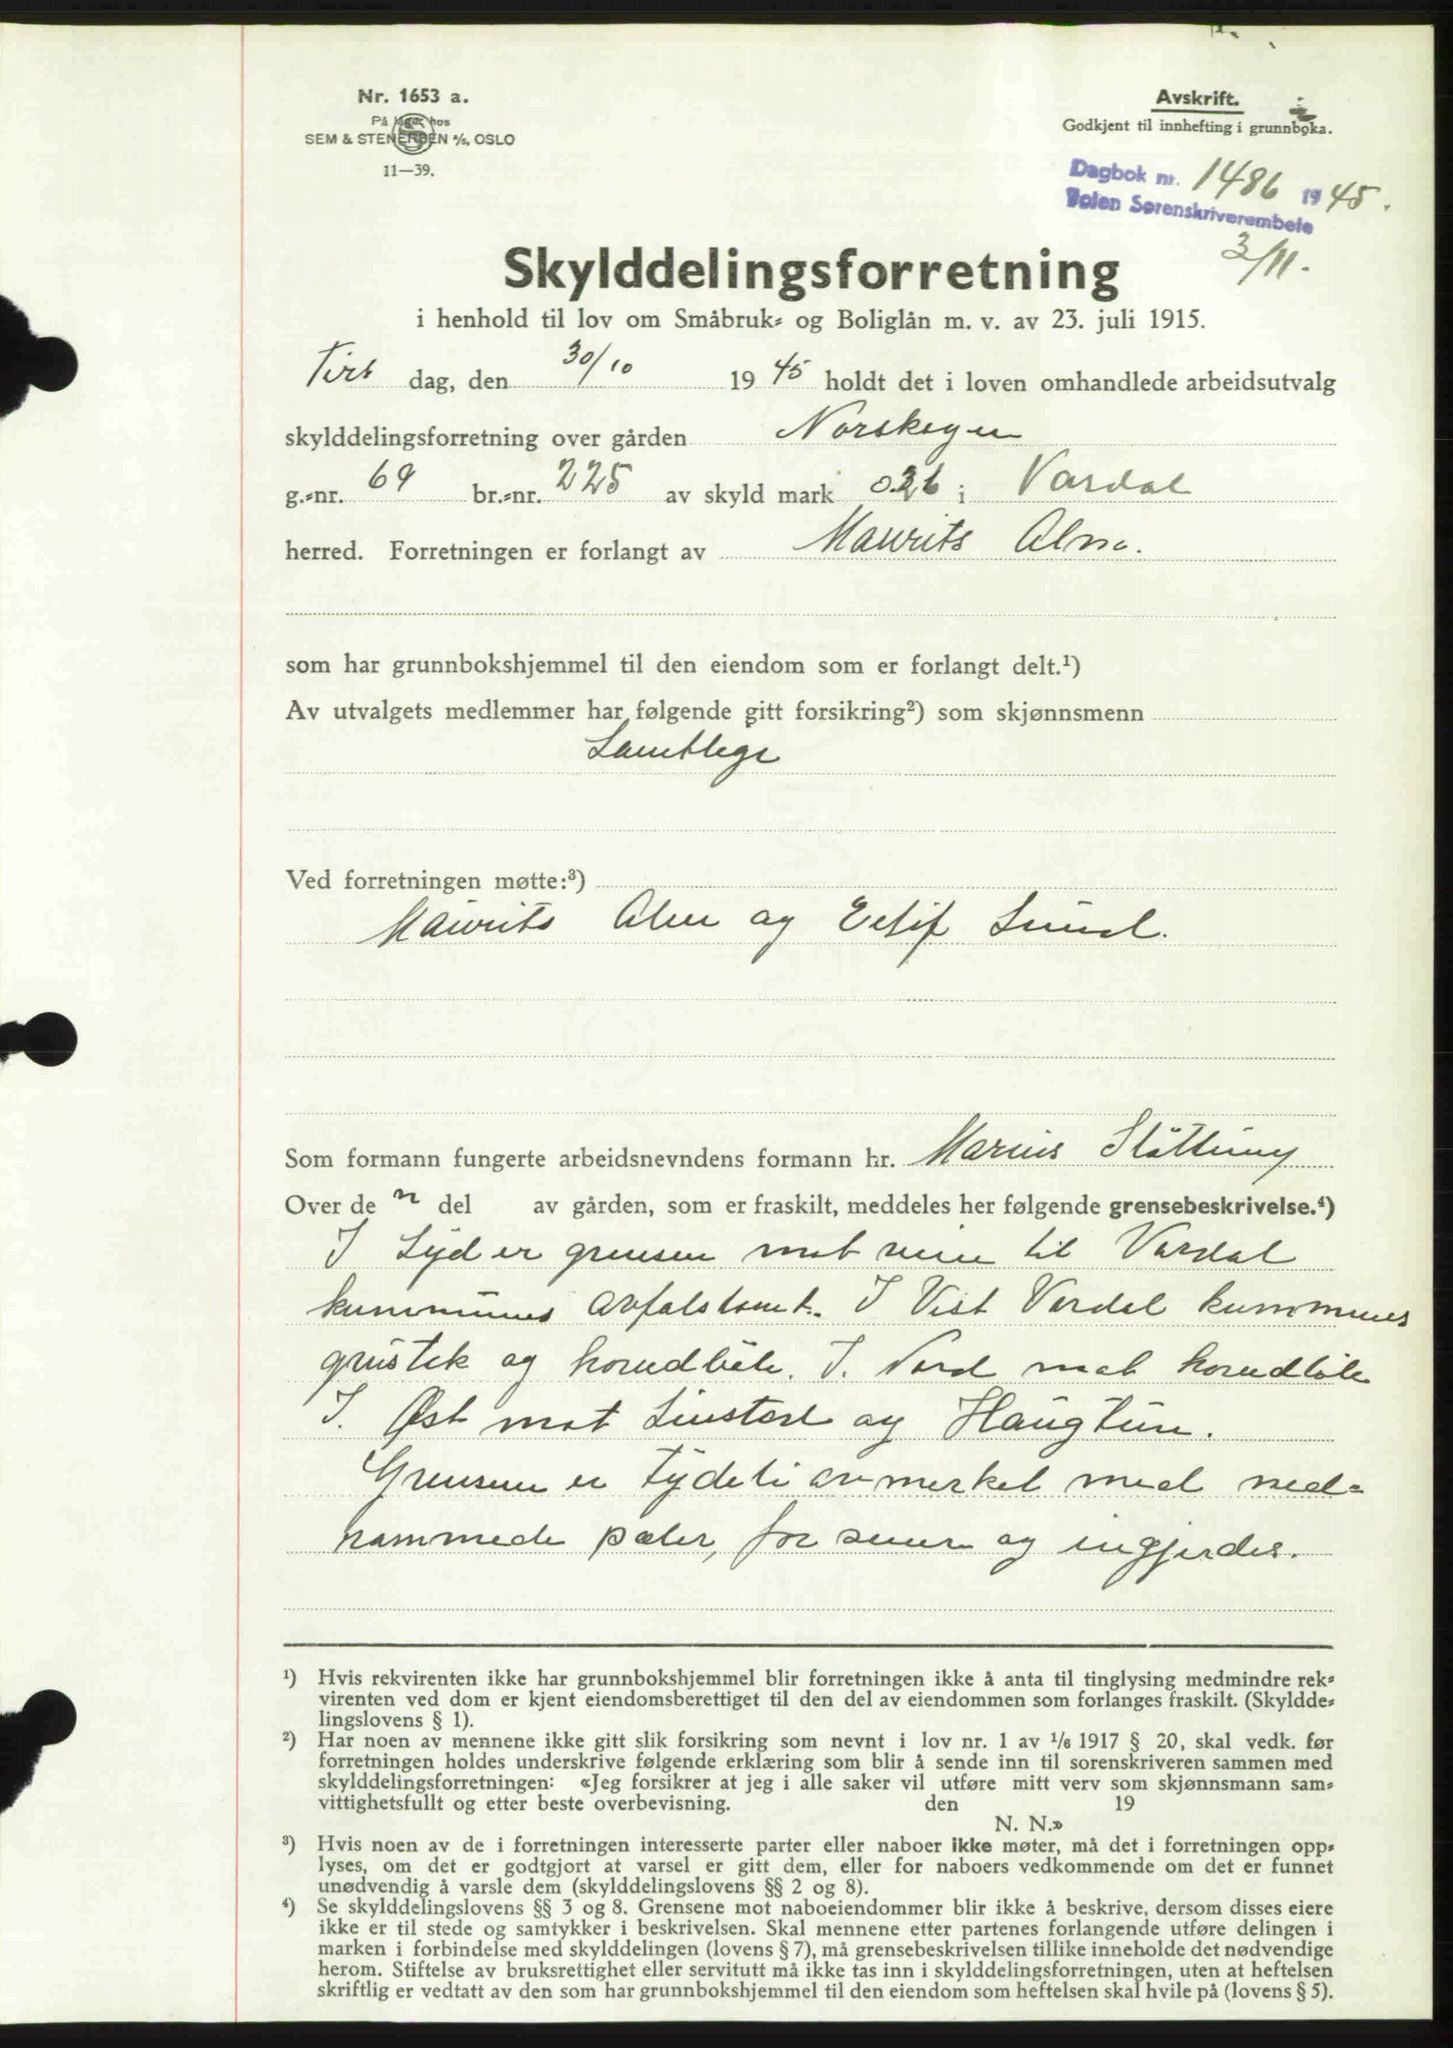 Nr. 1653 a.
På lager hos
SEM & STENERSEN A/S, OSLO
11—39.
Avskrift.
Godkjent til innhefting i grunnboka.
Dagbok nr. 1486 1945.
Toten Sorenskriverembete
3/11.
Skylddelingsforretning
i henhold til lov om Småbruk- og Boliglån m. v. av 23. juli 1915.
Tirs dag, den 30/10 1945 holdt det i loven omhandlede arbeidsutvalg
skylddelingsforretning over gården Norskogen
g.-nr. 69 br.-nr. 225 av skyld mark 0.26 i Vardal
herred. Forretningen er forlangt av Maurits Alm.
som har grunnbokshjemmel til den eiendom som er forlangt delt.¹)
Av utvalgets medlemmer har følgende gitt forsikring²) som skjønnsmenn
Samtlige
Ved forretningen møtte:³)
Maurits Alm og Lund.
Som formann fungerte arbeidsnevndens formann hr. Marius Slåttsveen
Over de n del av gården, som er fraskilt, meddeles her følgende grensebeskrivelse.⁴)
I Syd er grensen mot veien til Vardal
kommunes avfalstomt. I Vest Vardal kommunes
grustak og hovedbøle. I. Nord mot hovedbøle
I. Øst mot Linstad og Haugtun.
Grensen er tydeli avmerket med ned-
rammede pæler, for senere og ingjerdes.
¹) Hvis rekvirenten ikke har grunnbokshjemmel blir forretningen ikke å anta til tinglysing medmindre rek-
virenten ved dom er kjent eiendomsberettiget til den del av eiendommen som forlanges fraskilt. (Skyldde-
lingslovens § 1).
²) Har noen av mennene ikke gitt slik forsikring som nevnt i lov nr. 1 av 1/6 1917 § 20, skal vedk. før
forretningen holdes underskrive følgende erklæring som blir å sende inn til sorenskriveren sammen med
skylddelingsforretningen: «Jeg forsikrer at jeg i alle saker vil utføre mitt verv som skjønnsmann sam-
vittighetsfullt og etter beste overbevisning. den 19
N. N.»
³) Hvis noen av de i forretningen interesserte parter eller naboer ikke møter, må det i forretningen opp-
lyses, om det er godtgjort at varsel er gitt dem, eller for naboers vedkommende om det er funnet
unødvendig å varsle dem (skylddelingslovens §§ 2 og 8).
⁴) Se skylddelingslovens §§ 3 og 8. Grensene mot naboeiendommer blir ikke å beskrive, dersom disses eiere
ikke er til stede og samtykker i beskrivelsen. Skal mennene etter partenes forlangende utføre delingen i
marken i forbindelse med skylddelingen (lovens § 7), må grensebeskrivelsen tillike inneholde det nødvendige
herom. Stiftelse av bruksrettighet eller servitutt må ikke tas inn i skylddelingsforretningen, uten at heftelsen
skriftlig er vedtatt av den som har grunnbokshjemmel til den eiendom som heftelsen skal hvile på (lovens § 5).